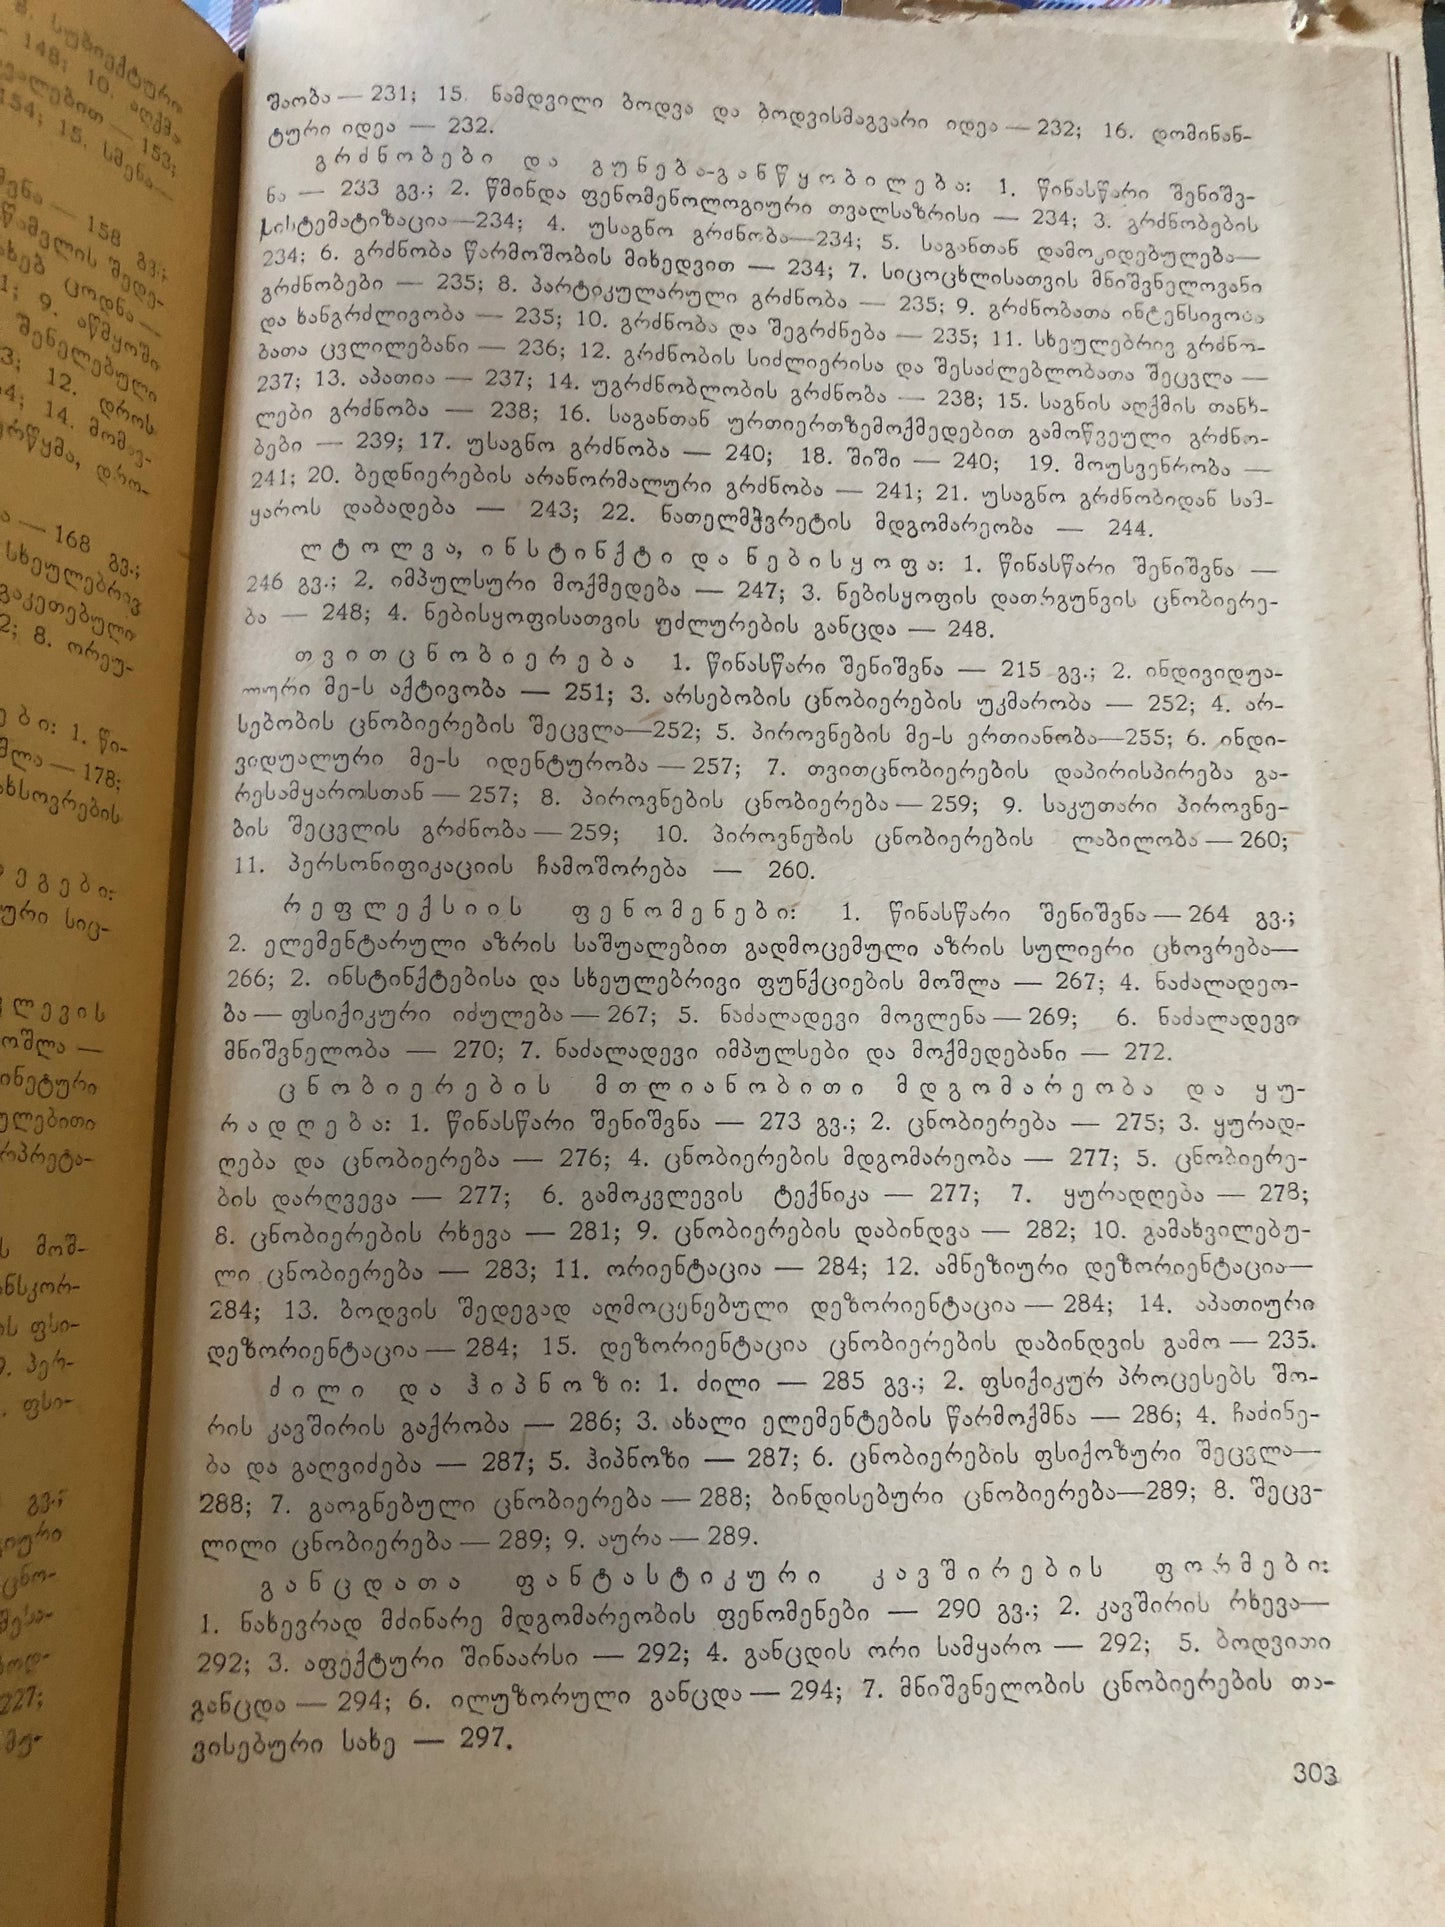 შაობა — 231; 15. ნამდვილი ბოდვა და ბოდვისმაგვარი იდეა — 232; 16. დომინან-
ტური იდეა — 232.
გრძნობები და გუნება-განწყობილება: 1. წინასწარი შენიშვ-
ნა — 233 გვ.; 2. წმინდა ფენომენოლოგიური თვალსაზრისი — 234; 3. გრძნობების
სისტემატიზაცია—234; 4. უსაგნო გრძნობა—234; 5. საგანთან დამოკიდებულება—
234; 6. გრძნობა წარმოშობის მიხედვით — 234; 7. სიცოცხლისათვის მნიშვნელოვანი
გრძნობები — 235; 8. პარტიკულარული გრძნობა — 235; 9. გრძნობათა ინტენსივობა
და ხანგრძლივობა — 235; 10. გრძნობა და შეგრძნება — 235; 11. სხეულებრივ გრძნო-
ბათა ცვლილებანი — 236; 12. გრძნობის სიძლიერისა და შესაძლებლობათა შეცვლა —
237; 13. აპათია — 237; 14. უგრძნობლობის გრძნობა — 238; 15. საგნის აღქმის თანხ-
ლები გრძნობა — 238; 16. საგანთან ურთიერთზემოქმედებით გამოწვეული გრძნო-
ბები — 239; 17. უსაგნო გრძნობა — 240; 18. შიში — 240; 19. მოუსვენრობა —
241; 20. ბედნიერების არანორმალური გრძნობა — 241; 21. უსაგნო გრძნობიდან სამ-
ყაროს დაბადება — 243; 22. ნათელმჭვრეტის მდგომარეობა — 244.
ლტოლვა, ინსტინქტი და ნებისყოფა: 1. წინასწარი შენიშვნა —
246 გვ.; 2. იმპულსური მოქმედება — 247; 3. ნებისყოფის დათრგუნვის ცნობიერე-
ბა — 248; 4. ნებისყოფისათვის უძლურების განცდა — 248.
თვითცნობიერება 1. წინასწარი შენიშვნა — 215 გვ.; 2. ინდივიდუა-
ლური მე-ს აქტივობა — 251; 3. არსებობის ცნობიერების უკმარობა — 252; 4. არ-
სებობის ცნობიერების შეცვლა—252; 5. პიროვნების მე-ს ერთიანობა—255; 6. ინდი-
ვიდუალური მე-ს იდენტურობა — 257; 7. თვითცნობიერების დაპირისპირება გა-
რესამყაროსთან — 257; 8. პიროვნების ცნობიერება — 259; 9. საკუთარი პიროვნე-
ბის შეცვლის გრძნობა — 259; 10. პიროვნების ცნობიერების ლაბილობა — 260;
11. პერსონიფიკაციის ჩამოშორება — 260.
რეფლექსიის ფენომენები: 1. წინასწარი შენიშვნა — 264 გვ.;
2. ელემენტარული აზრის საშუალებით გადმოცემული აზრის სულიერი ცხოვრება—
266; 2. ინსტინქტებისა და სხეულებრივი ფუნქციების მოშლა — 267; 4. ნაძალადეო-
ბა — ფსიქიკური იძულება — 267; 5. ნაძალადევი მოვლენა — 269; 6. ნაძალადევი
მნიშვნელობა — 270; 7. ნაძალადევი იმპულსები და მოქმედებანი — 272.
ცნობიერების მთლიანობითი მდგომარეობა და ყუ-
რადღება: 1. წინასწარი შენიშვნა — 273 გვ.; 2. ცნობიერება — 275; 3. ყურად-
ღება და ცნობიერება — 276; 4. ცნობიერების მდგომარეობა — 277; 5. ცნობიერე-
ბის დარღვევა — 277; 6. გამოკვლევის ტექნიკა — 277; 7. ყურადღება — 278;
8. ცნობიერების რხევა — 281; 9. ცნობიერების დაბინდვა — 282; 10. გამახვილებუ-
ლი ცნობიერება — 283; 11. ორიენტაცია — 284; 12. ამნეზიური დეზორიენტაცია—
284; 13. ბოდვის შედეგად აღმოცენებული დეზორიენტაცია — 284; 14. აპათიური
დეზორიენტაცია — 284; 15. დეზორიენტაცია ცნობიერების დაბინდვის გამო — 235.
ძილი და ჰიპნოზი: 1. ძილი — 285 გვ.; 2. ფსიქიკურ პროცესებს შო-
რის კავშირის გაქრობა — 286; 3. ახალი ელემენტების წარმოქმნა — 286; 4. ჩაძინე-
ბა და გაღვიძება — 287; 5. ჰიპნოზი — 287; 6. ცნობიერების ფსიქოზური შეცვლა—
288; 7. გაოგნებული ცნობიერება — 288; ბინდისებური ცნობიერება—289; 8. შეცვ-
ლილი ცნობიერება — 289; 9. აურა — 289.
განცდათა ფანტასტიკური კავშირების ფორმები:
1. ნახევრად მძინარე მდგომარეობის ფენომენები — 290 გვ.; 2. კავშირის რხევა—
292; 3. აფექტური შინაარსი — 292; 4. განცდის ორი სამყარო — 292; 5. ბოდვითი
განცდა — 294; 6. ილუზორული განცდა — 294; 7. მნიშვნელობის ცნობიერების თა-
ვისებური სახე — 297.
303